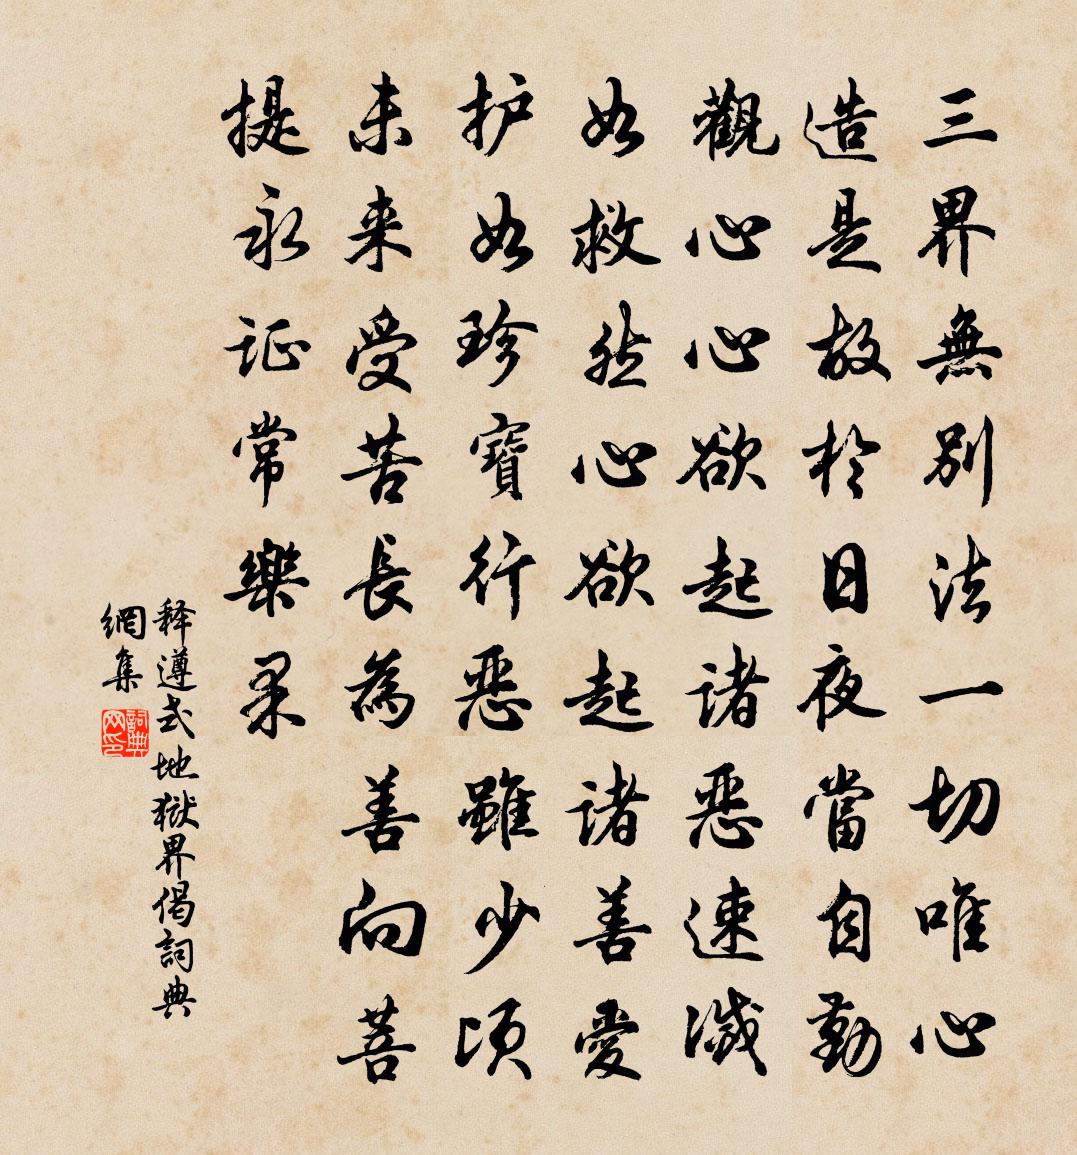 三界無別法一切唯心
造是故於日夜當自勤
觀心心欲起諸惡速滅
如救然心欲起諸善愛
护如珍寶行惡雖少頃
未来受苦長為善向菩
提永证常樂果
释遵式地獄界偈詞典
網集
詞典网印